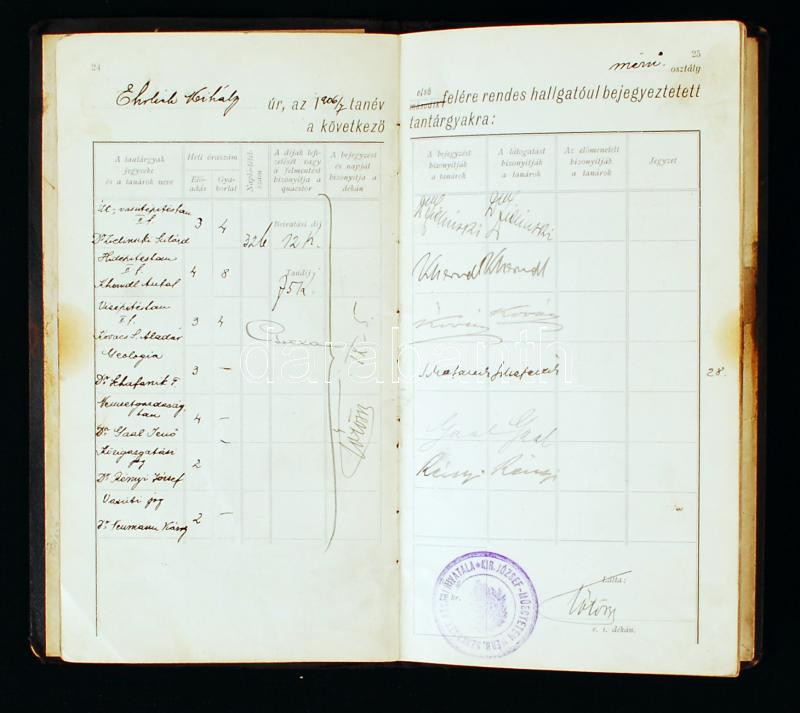 24
Ehrlich Mihály úr, az 1906/7 tanév
a következő
A tantárgyak jegyzéke és a tanárok neve
Heti óraszám
Elő-adás
Gya-korlat
Naplótételszám
A díjak lefizetését vagy a felmentést bizonyítja a quaestor
A bejegyzést és napját bizonyítja a dékán
II. f.
Dr Zielinski Szilárd
3
4
326
Beiratási díj
12 K.
Hídépítéstan
II f.
Kherndl Antal
4
8
Tandíj
75 K.
Vízépítéstan
II f.
Kovács S. Aladár
3
4
Geologia
Dr Schafarzik F.
3
—
Nemzetgazdaság-
tan
Dr Gaal Jenő
4
—
Közigazgatási
jog
Dr Rényi József
2
—
Vasúti jog
Dr Neumann Károly
2
—
25
mérn. osztály
első
második felére rendes hallgatóul bejegyeztetett
tantárgyakra:
A bejegyzést bizonyítják a tanárok
A látogatást bizonyítják a tanárok
Az előmenetelt bizonyítják a tanárok
Jegyzet
Zielinski Zielinski
Kherndl Kherndl
Kovács Kovács
Schafarzik Schafarzik
28.
Gaal Gaal
Rényi Rényi
KIR. JÓZSEF-MŰEGYETEM
Látta:
e. i. dékán.
darabanth